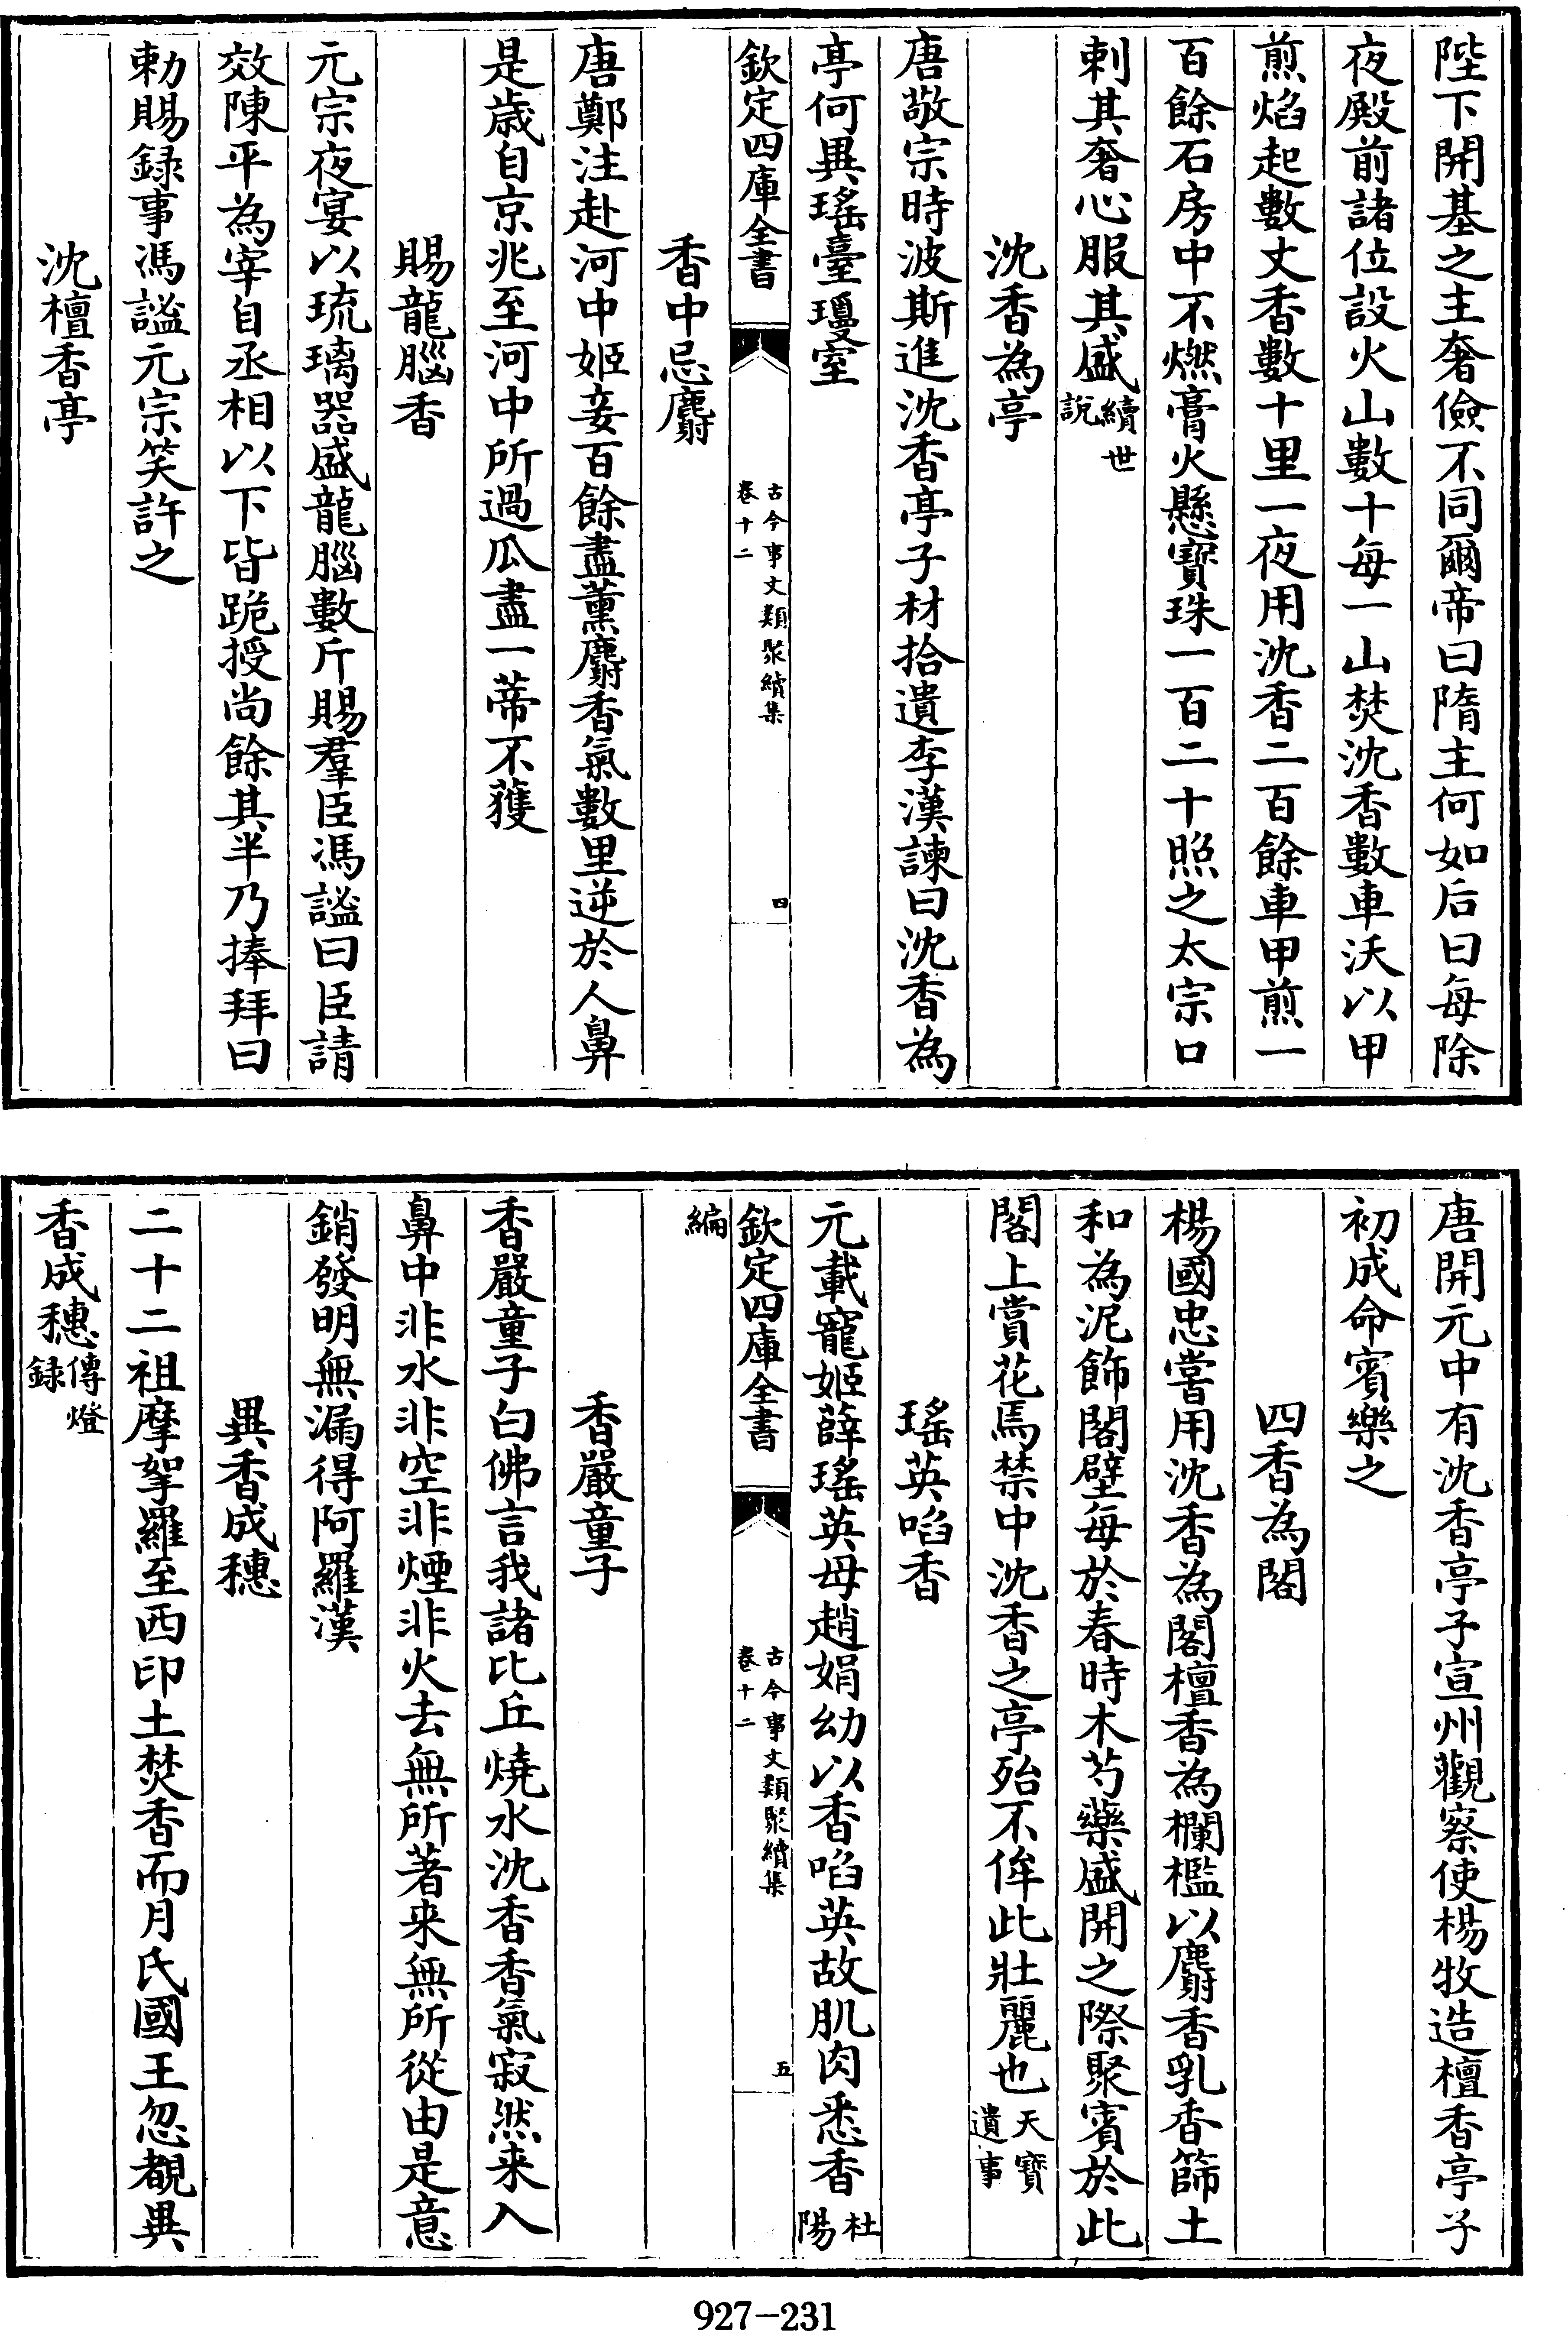 陛下開基之主奢儉不同爾帝曰隋主何如后曰每除
夜殿前諸位設火山數十每一山焚沈香數車沃以甲
煎焰起數丈香數十里一夜用沈香二百餘車甲煎一
百餘石房中不燃膏火懸寶珠一百二十照之太宗口
刺其奢心服其盛續世說
沈香為亭
唐敬宗時波斯進沈香亭子材拾遺李漢諫曰沈香為
亭何異瑤臺瓊室
欽定四庫全書
古今事文類聚續集
卷十二
四
香中忌麝
唐鄭注赴河中姬妾百餘盡薰麝香氣數里逆於人鼻
是歲自京兆至河中所過瓜盡一蒂不獲
賜龍腦香
元宗夜宴以琉璃器盛龍腦數斤賜羣臣馮謐曰臣請
效陳平為宰自丞相以下皆跪授尚餘其半乃捧拜曰
勅賜録事馮謐元宗笑許之
沈檀香亭
唐開元中有沈香亭子宣州觀察使楊牧造檀香亭子
初成命賓樂之
四香為閣
楊國忠嘗用沈香為閣檀香為欄檻以麝香乳香篩土
和為泥飾閣壁每於春時木芍藥盛開之際聚賓於此
閣上賞花焉禁中沈香之亭殆不侔此壯麗也天寶遺事
瑤英啗香
元載寵姬薛瑤英母趙娟幼以香啗英故肌肉悉香杜陽
欽定四庫全書
古今事文類聚續集
卷十二
五
編
香嚴童子
香嚴童子白佛言我諸比丘燒水沈香香氣寂然来入
鼻中非水非空非煙非火去無所著来無所從由是意
銷發明無漏得阿羅漢
異香成穗
二十二祖摩拏羅至西印土焚香而月氏國王忽覩異
香成穗傳燈録
927-231